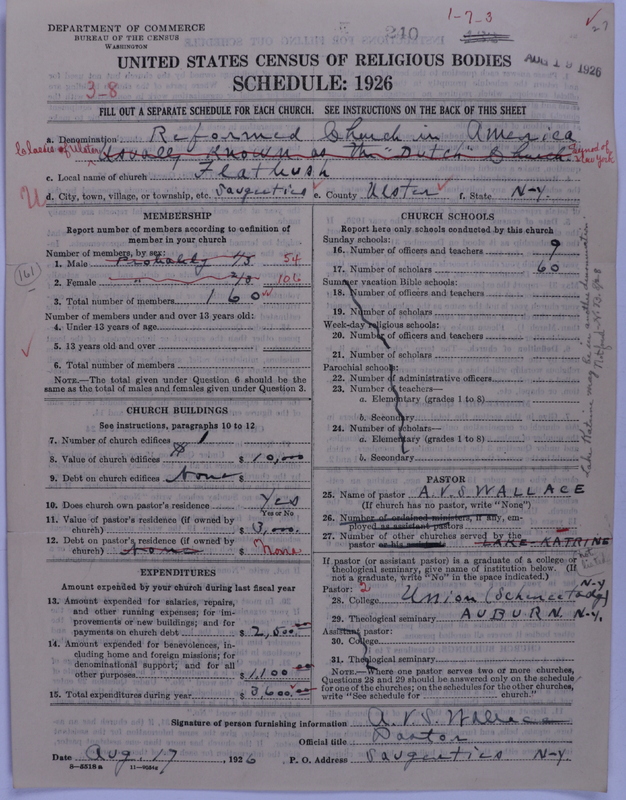 1-7-3
240
27
AUG 19 1926
DEPARTMENT OF COMMERCE
BUREAU OF THE CENSUS
WASHINGTON
UNITED STATES CENSUS OF RELIGIOUS BODIES
SCHEDULE: 1926
3-8
FILL OUT A SEPARATE SCHEDULE FOR EACH CHURCH. SEE INSTRUCTIONS ON THE BACK OF THIS SHEET
a. Denomination Reformed Church in America
Classis of Ulster Usually known as the "Dutch" Church. Synod of New York
c. Local name of church Flatbush
U d. City, town, village, or township, etc. Saugerties e. County Ulster f. State N-y.
MEMBERSHIP
Report number of members according to definition of
member in your church
Number of members, by sex:
1. Male Probably 54
2. Female " 106
3. Total number of members 160
161
Number of members under and over 13 years old:
4. Under 13 years of age
5. 13 years old and over
6. Total number of members
NOTE.—The total given under Question 6 should be the
same as the total of males and females given under Question 3.
CHURCH BUILDINGS
See instructions, paragraphs 10 to 12
7. Number of church edifices 1
8. Value of church edifices $ 10,000
9. Debt on church edifices None $
10. Does church own pastor's residence Yes
Yes or No
11. Value of pastor's residence (if owned by
church) $ 3,000.
12. Debt on pastor's residence (if owned by
church) None $ None
EXPENDITURES
Amount expended by your church during last fiscal year
13. Amount expended for salaries, repairs,
and other running expenses; for im-
provements or new buildings; and for
payments on church debt $ 2,500
14. Amount expended for benevolences, in-
cluding home and foreign missions; for
denominational support; and for all
other purposes $ 1,100
15. Total expenditures during year $ 3,600.00
CHURCH SCHOOLS
Report here only schools conducted by this church
Sunday schools:
16. Number of officers and teachers 9
17. Number of scholars 60
Summer vacation Bible schools:
18. Number of officers and teachers
19. Number of scholars
Week-day religious schools:
20. Number of officers and teachers
21. Number of scholars
Parochial schools:
22. Number of administrative officers
23. Number of teachers—
a. Elementary (grades 1 to 8)
b. Secondary
24. Number of scholars—
a. Elementary (grades 1 to 8)
b. Secondary
Lake Katrine may be in another denomination
PASTOR
25. Name of pastor A.V.S. WALLACE
(If church has no pastor, write "None")
26. Number of ordained ministers, if any, em-
ployed as assistant pastors
27. Number of other churches served by the
pastor LAKE-KATRINE
not listed
If pastor (or assistant pastor) is a graduate of a college or
theological seminary, give name of institution below. (If
not a graduate, write "No" in the space indicated.)
Pastor: 2
28. College Union (Schenectady) N-y
29. Theological seminary AUBURN. N-y.
Assistant pastor:
30. College
31. Theological seminary
NOTE.—Where one pastor serves two or more churches,
Questions 28 and 29 should be answered only on the schedule
for one of the churches; on the schedules for the other churches,
write "See schedule for church."
Signature of person furnishing information A.V.S. Wallace
Official title Pastor
Date Aug. 17, 1926 P. O. Address Saugerties N-y.
8-5518 a